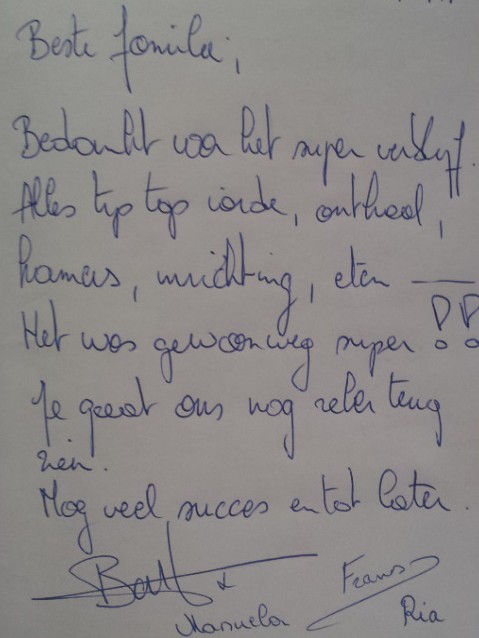 Beste familie,
Bedankt voor het super verblijf.
Alles tip top in orde, onthaal,
kamers, inrichting, eten ___
Het was gewoonweg super !!
Je gaat ons nog zeker terug
zien.
Nog veel succes en tot later.
Bart & Manuela
Frans
Ria